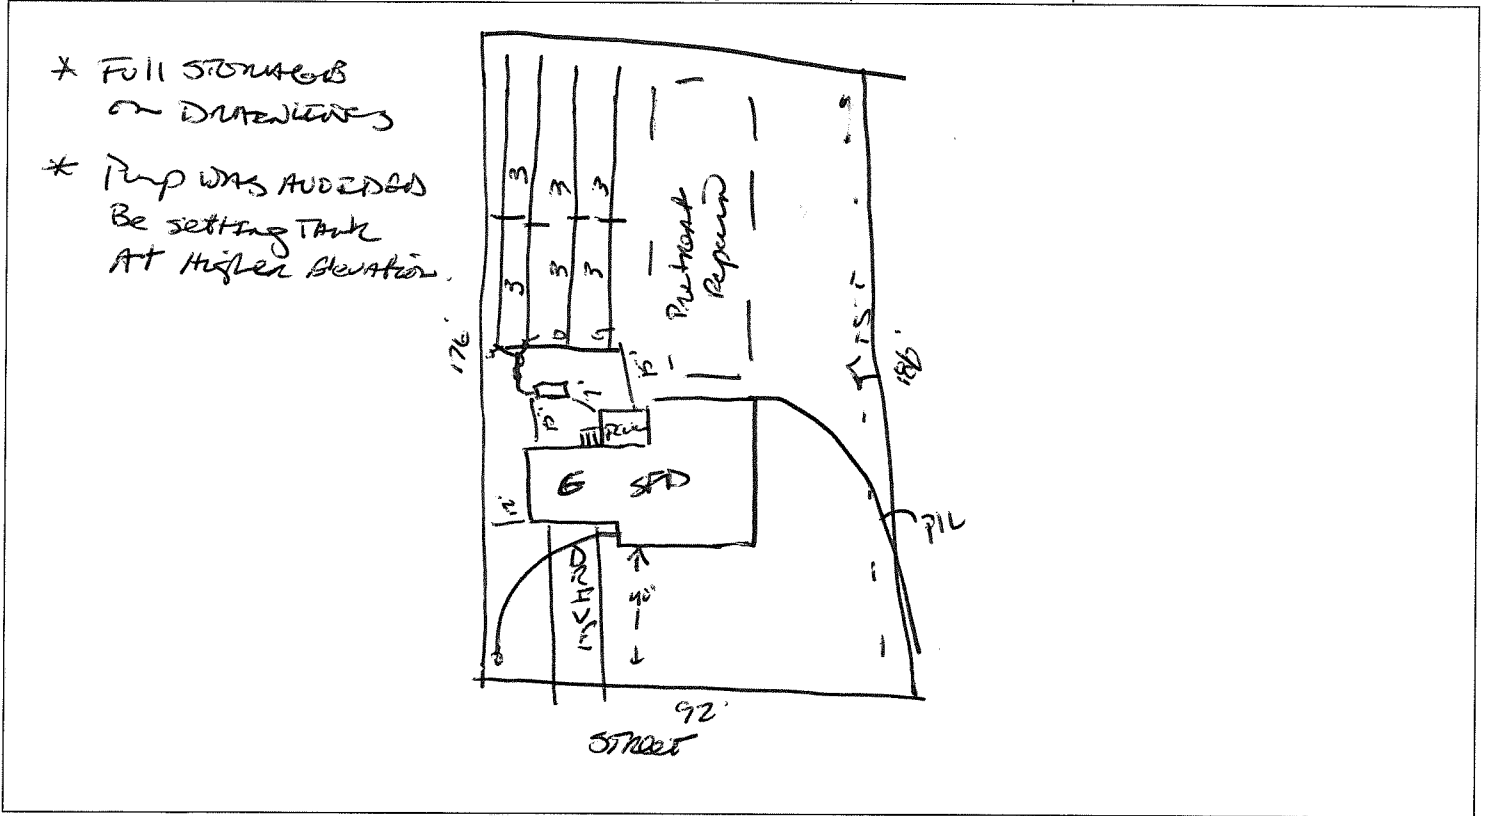 * Full STORAGE
on DRAINLINES
* Pump WAS AVOIDED
Be setting TANK
At Higher Elevation.
3 3 3
3 3 3
Pretreat
Repair
176'
186'
15'
10'
G SFD
12'
P/L
40'
92'
STREET